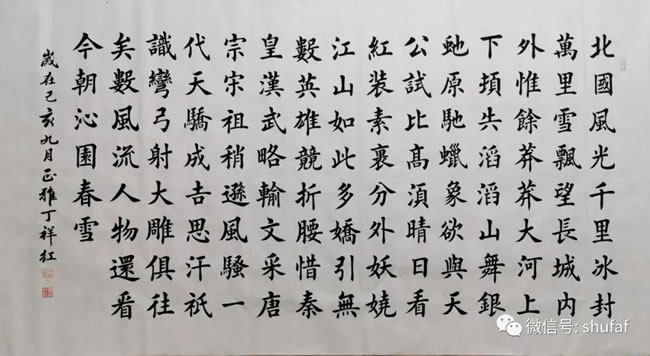 北國風光千里冰封
萬里雪飄望長城內
外惟餘莽莽大河上
下頓失滔滔山舞銀
虵原馳蠟象欲與天
公試比高湏晴日看
紅裝素裹分外妖嬈
江山如此多嬌引無
數英雄競折腰惜秦
皇漢武略輸文采唐
宗宋祖稍遜風騷一
代天驕成吉思汗祇
識彎弓射大雕俱往
矣數風流人物還看
今朝沁園春雪
歲在己亥九月正雅丁祥红
微信号: shufaf